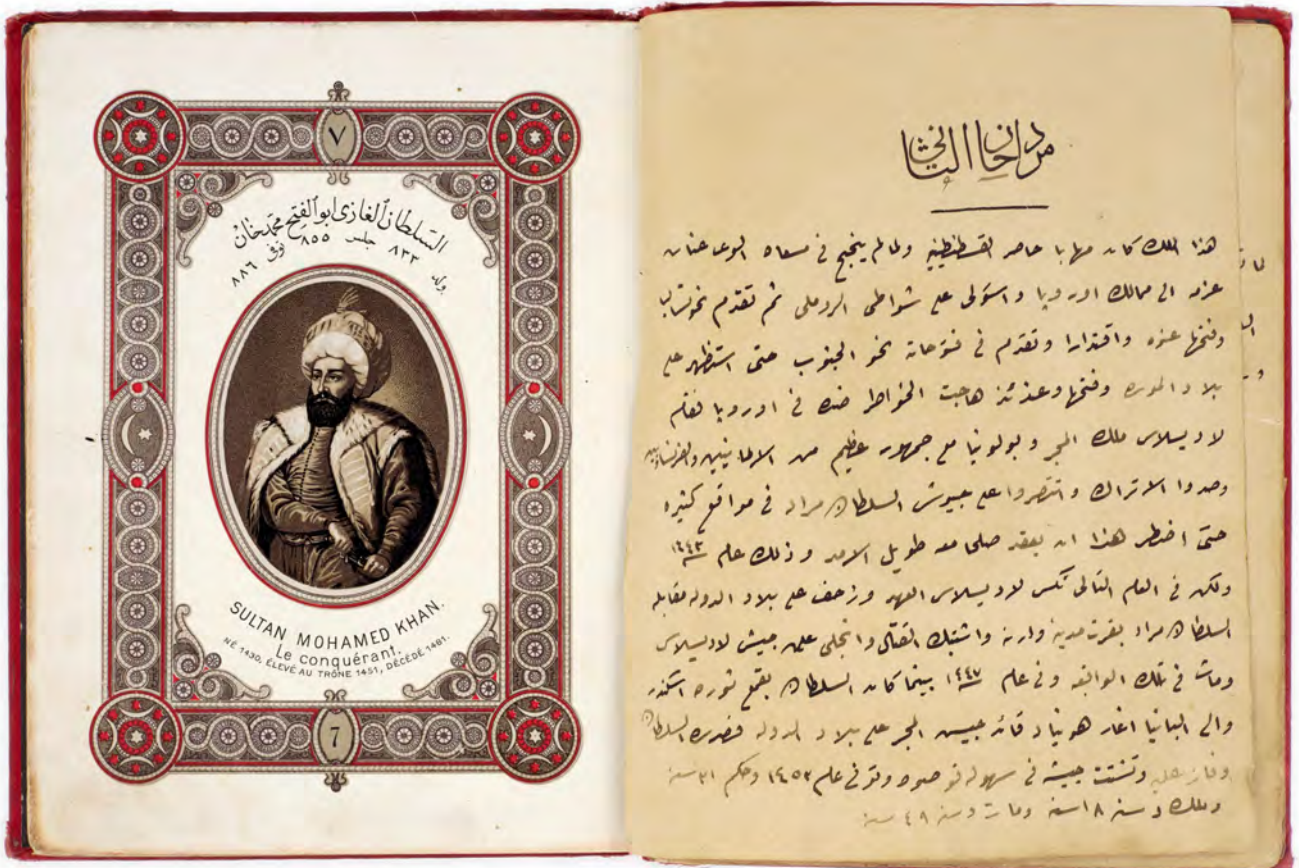 ٧
السلطان الغازى ابو الفتح محمد خان
ولد ٨٣٣ جلس ٨٥٥ توفى ٨٨٦
SULTAN MOHAMED KHAN.
Le conquérant.
NÉ 1430, ÉLEVÉ AU TRÔNE 1451, DÉCÉDÉ 1481.
7
مراد خان الثاني
هذا الملك كان مهابا حاصر القسطنطينيه ولما لم ينجح في مسعاه الوى عنان
عزمه الى ممالك اوروبا واستولى على شواطى الروملى ثم تقدم نحو
وفتحها عنوه واقتدارا وتقدم في فتوحاته نحو الجنوب حتى استظهر على
بلاد الموره وفتحها وعندئذ هاجت الخواطر ضده في اوروبا فقام
لاديسلاس ملك المجر وبولونيا مع جمهور عظيم من الالمانيين والفرنساويين
وصدوا الاتراك وانتصروا على جيوش السلطان مراد في مواقع كثيره
حتى اضطر هذا ان يعقد صلحا معه طويل الامد وذلك عام ١٤٤٣
ولكن في العام التالى نكس لاديسلاس العهد وزحف على بلاد الدوله فقابله
السلطان مراد بقرب مدينة وارنه واشتبك القتال وانجلى عن جيش لاديسلاس
ومات في تلك الواقعه وفي عام ١٤٤٧ بينما كان السلطان يقمع ثورة اسكندر
والى البانيا اغار هونياد قائد جيش المجر على بلاد الدوله فضربه السلطان
وفاز عليه وتشتت جيشه في سهوله قوصوه وتوفى عام ١٤٥٣ وحكم ٣١ سنة
وملك وسنه ١٨ سنة ومات وسنه ٤٩ سنة